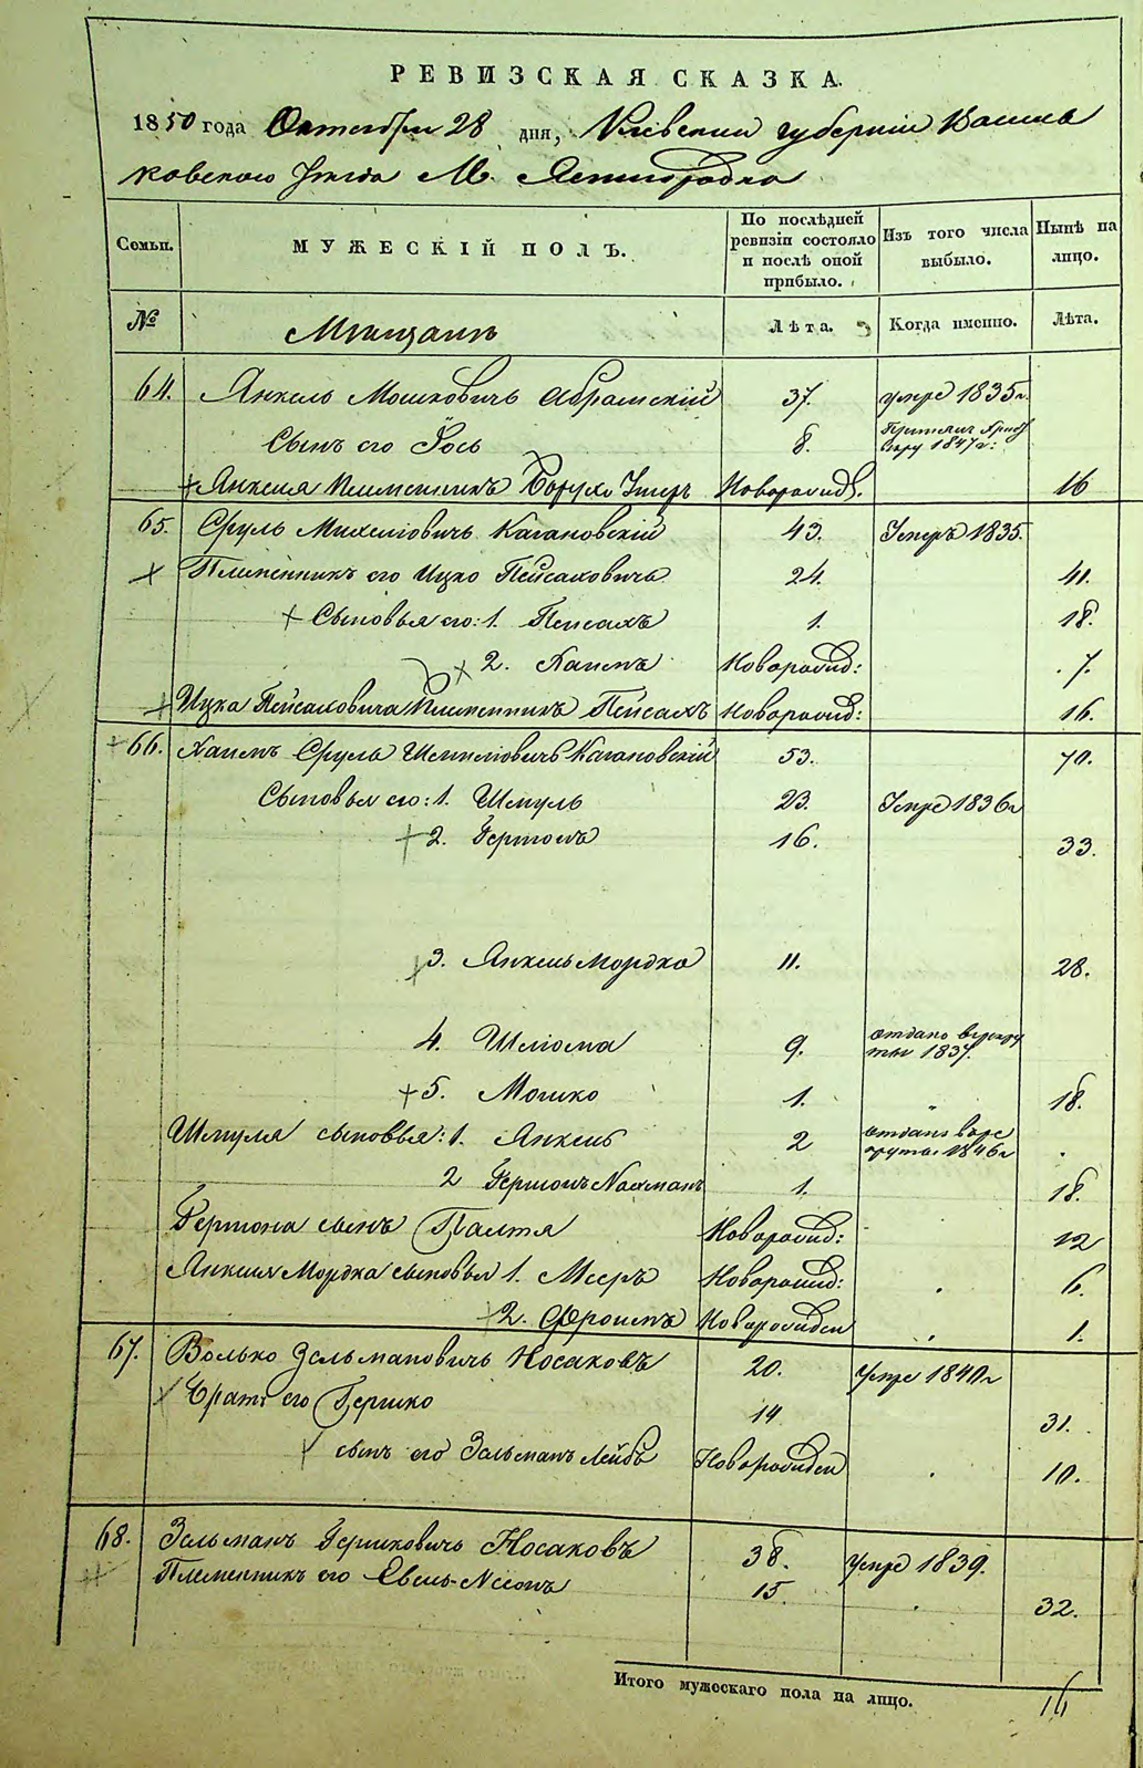 РЕВИЗСКАЯ СКАЗКА.
1850 года Октября 28 дня, Кіевскии губерніи Василь
ковского уѣзда М. Ясногородка
Семьи. МУЖЕСКІЙ ПОЛЪ. По послѣдней ревизіи состояло и послѣ оной прибыло. Изъ того числа выбыло. Нынѣ на лицо.
№ Мѣщанъ Лѣта. Когда именно. Лѣта.
64. Янкель Мошковичъ Абрамскій 37. умре 1835г.
Сынъ его Іось 8. 1847г:
Янкеля Племенникъ Борухъ Новорожд. 16
65. Сруль Михелювичъ Кагановскій 43. Умеръ 1835.
Племенникъ его Ицко Пейсаховичъ 24. 41.
Сыновья его: 1. Пейсахъ 1. 18.
2. Хаимъ Новорожд: 7.
Ицка Пейсаховича Племенникъ Пейсахъ Новорожд: 16.
66. Хаимъ Сруль Шмулювичъ Кагановскій 53. 70.
Сыновья его: 1. Шмуль 23. Умре 1836г
2. Гершонъ 16. 33.
3. Янкель Мордко 11. 28.
4. Шліома 9. отданъ в рекру
ты 1837.
5. Мошко 1. 18.
Шмуля сыновья: 1. Янкель 2 отданъ в рек
руты 1846г
2 Гершонъ Нахманъ 1. 18.
Гершона сынъ Палтя Новорожд: 12
Янкеля Мордка сыновья 1. Мееръ Новорожд: 6.
2. Фроимъ Новорожден 1.
67. Волько Зельмановичъ Носаковъ 20. умре 1840г
Братъ его Гершко 14 31.
сынъ его Зельманъ Лейбъ Новорожден 10.
68. Зельманъ Гершковичъ Носаковъ 38. умре 1839.
Племенникъ его 15. 32.
Итого мужескаго пола на лицо. 16